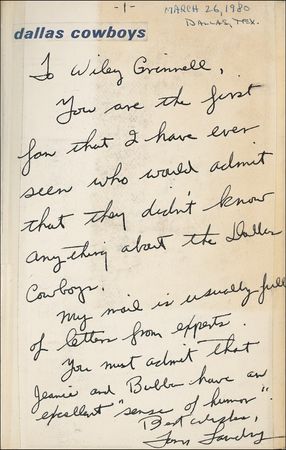 -1-
MARCH 26, 1980
DALLAS, TEX.
dallas cowboys
To Wiley Grinnell,
You are the first
fan that I have ever
seen who would admit
that they didn't know
anything about the Dallas
Cowboys.
My mail is usually full
of letters from experts.
You must admit that
Jeanie and Bubba have an
excellent "sense of humor".
Best wishes,
Tom Landry